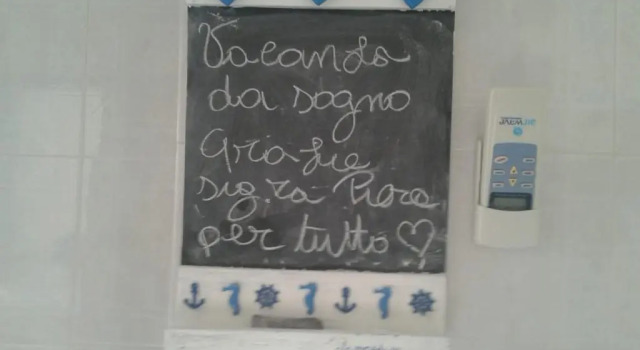 Vacanza
da sogno
Grazie
sig.ra Piera
per tutto